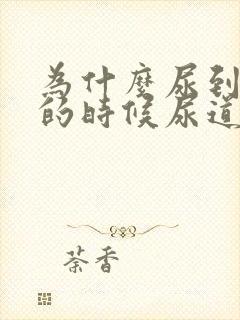 為什麼尿到
的時候尿道
茶香